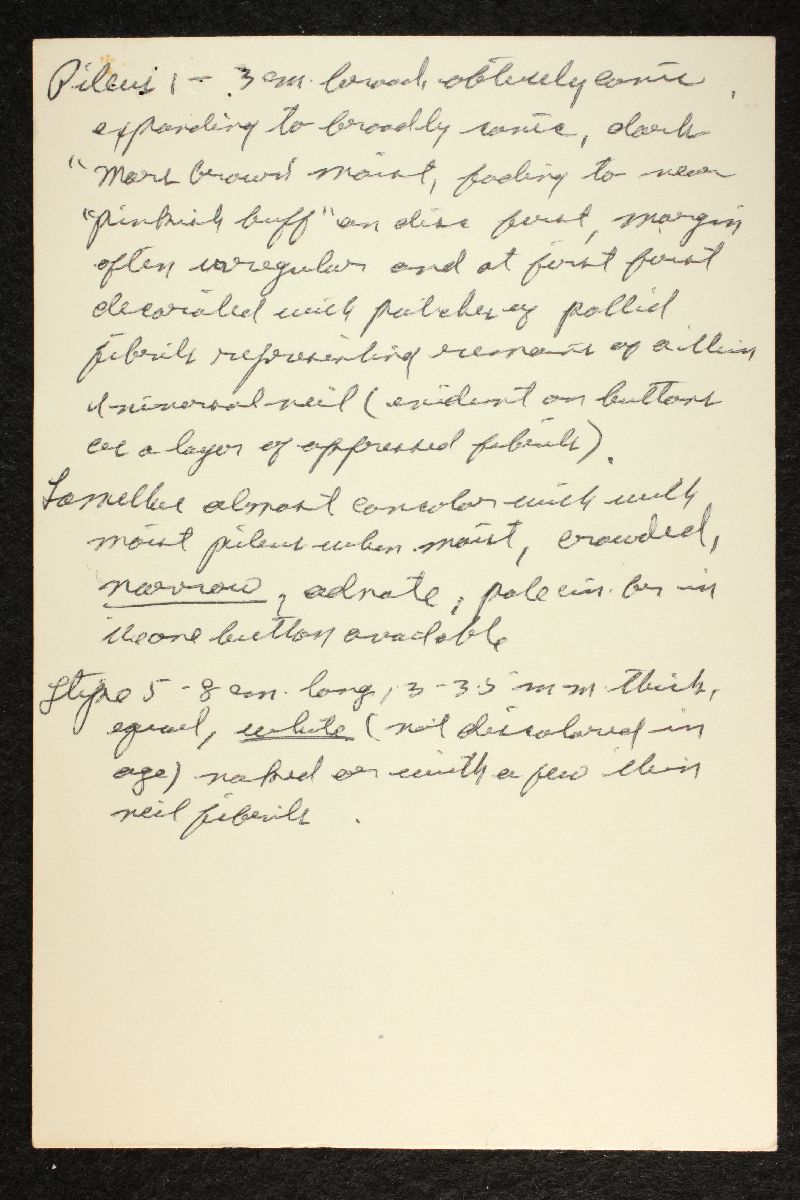 Pileus 1 - 3 cm. broad, obtusely conic
expanding to broadly conic, dark
"Mars brown" moist, fading to near
"pinkish buff" on disc first, margin
often irregular and at first first
decorated with patches of pallid
fibrils representing remains of a thin
universal veil (evident on buttons
as a layer of appressed fibrils).
Lamellae almost concolor with with
moist pileus when moist, crowded,
narrow, adnate; pale cin. br in
the one button available
Stipe 5 - 8 cm. long, 3-3.5 mm. thick,
equal, white (not discolored in
age) naked or with a few thin
veil fibrils.